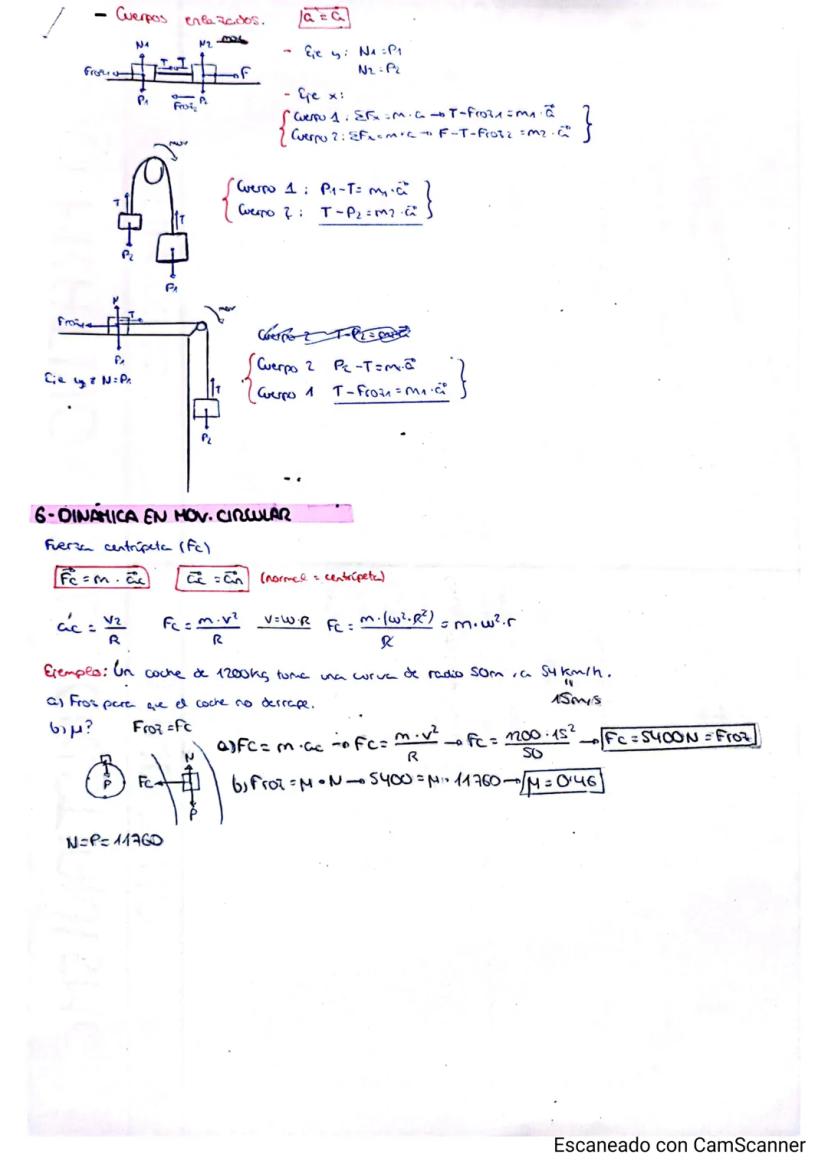 - Cuerpos enlazados. a = a
N1 N2 mov
Froz1 T T F
P1 Froz2 P2
- Eje y: N1 = P1
N2 = P2
- Eje x:
Cuerpo 1: ΣFx = m·a → T-Froz1 = m1·a
Cuerpo 2: ΣFx = m·a → F-T-Froz2 = m2·a
mov
T T
P2
P1
Cuerpo 1: P1-T = m1·a
Cuerpo 2: T-P2 = m2·a
N mov
Froz T
P1
Eje y: N = P1
T
P2
Cuerpo 2 P2-T = m·a
Cuerpo 1 T-Froz1 = m1·a
6-DINÁMICA EN MOV. CIRCULAR
Fuerza centrípeta (Fc)
Fc = m · ac ac = an (normal = centrípeta)
ac = v2/R Fc = m·v²/R v=ω·R Fc = m·(ω²·R²)/R = m·ω²·r
Ejemplo: Un coche de 1200kg toma una curva de radio 50m, a 54km/h.
15m/s
a) Froz para que el coche no derrape.
b) μ? Froz = Fc
a) Fc = m·ac → Fc = m·v²/R → Fc = 1200·15²/50 → Fc = 5400N = Froz
b) Froz = μ·N → 5400 = μ·11760 → μ = 0'46
P Fc N P
N=P= 11760
Escaneado con CamScanner